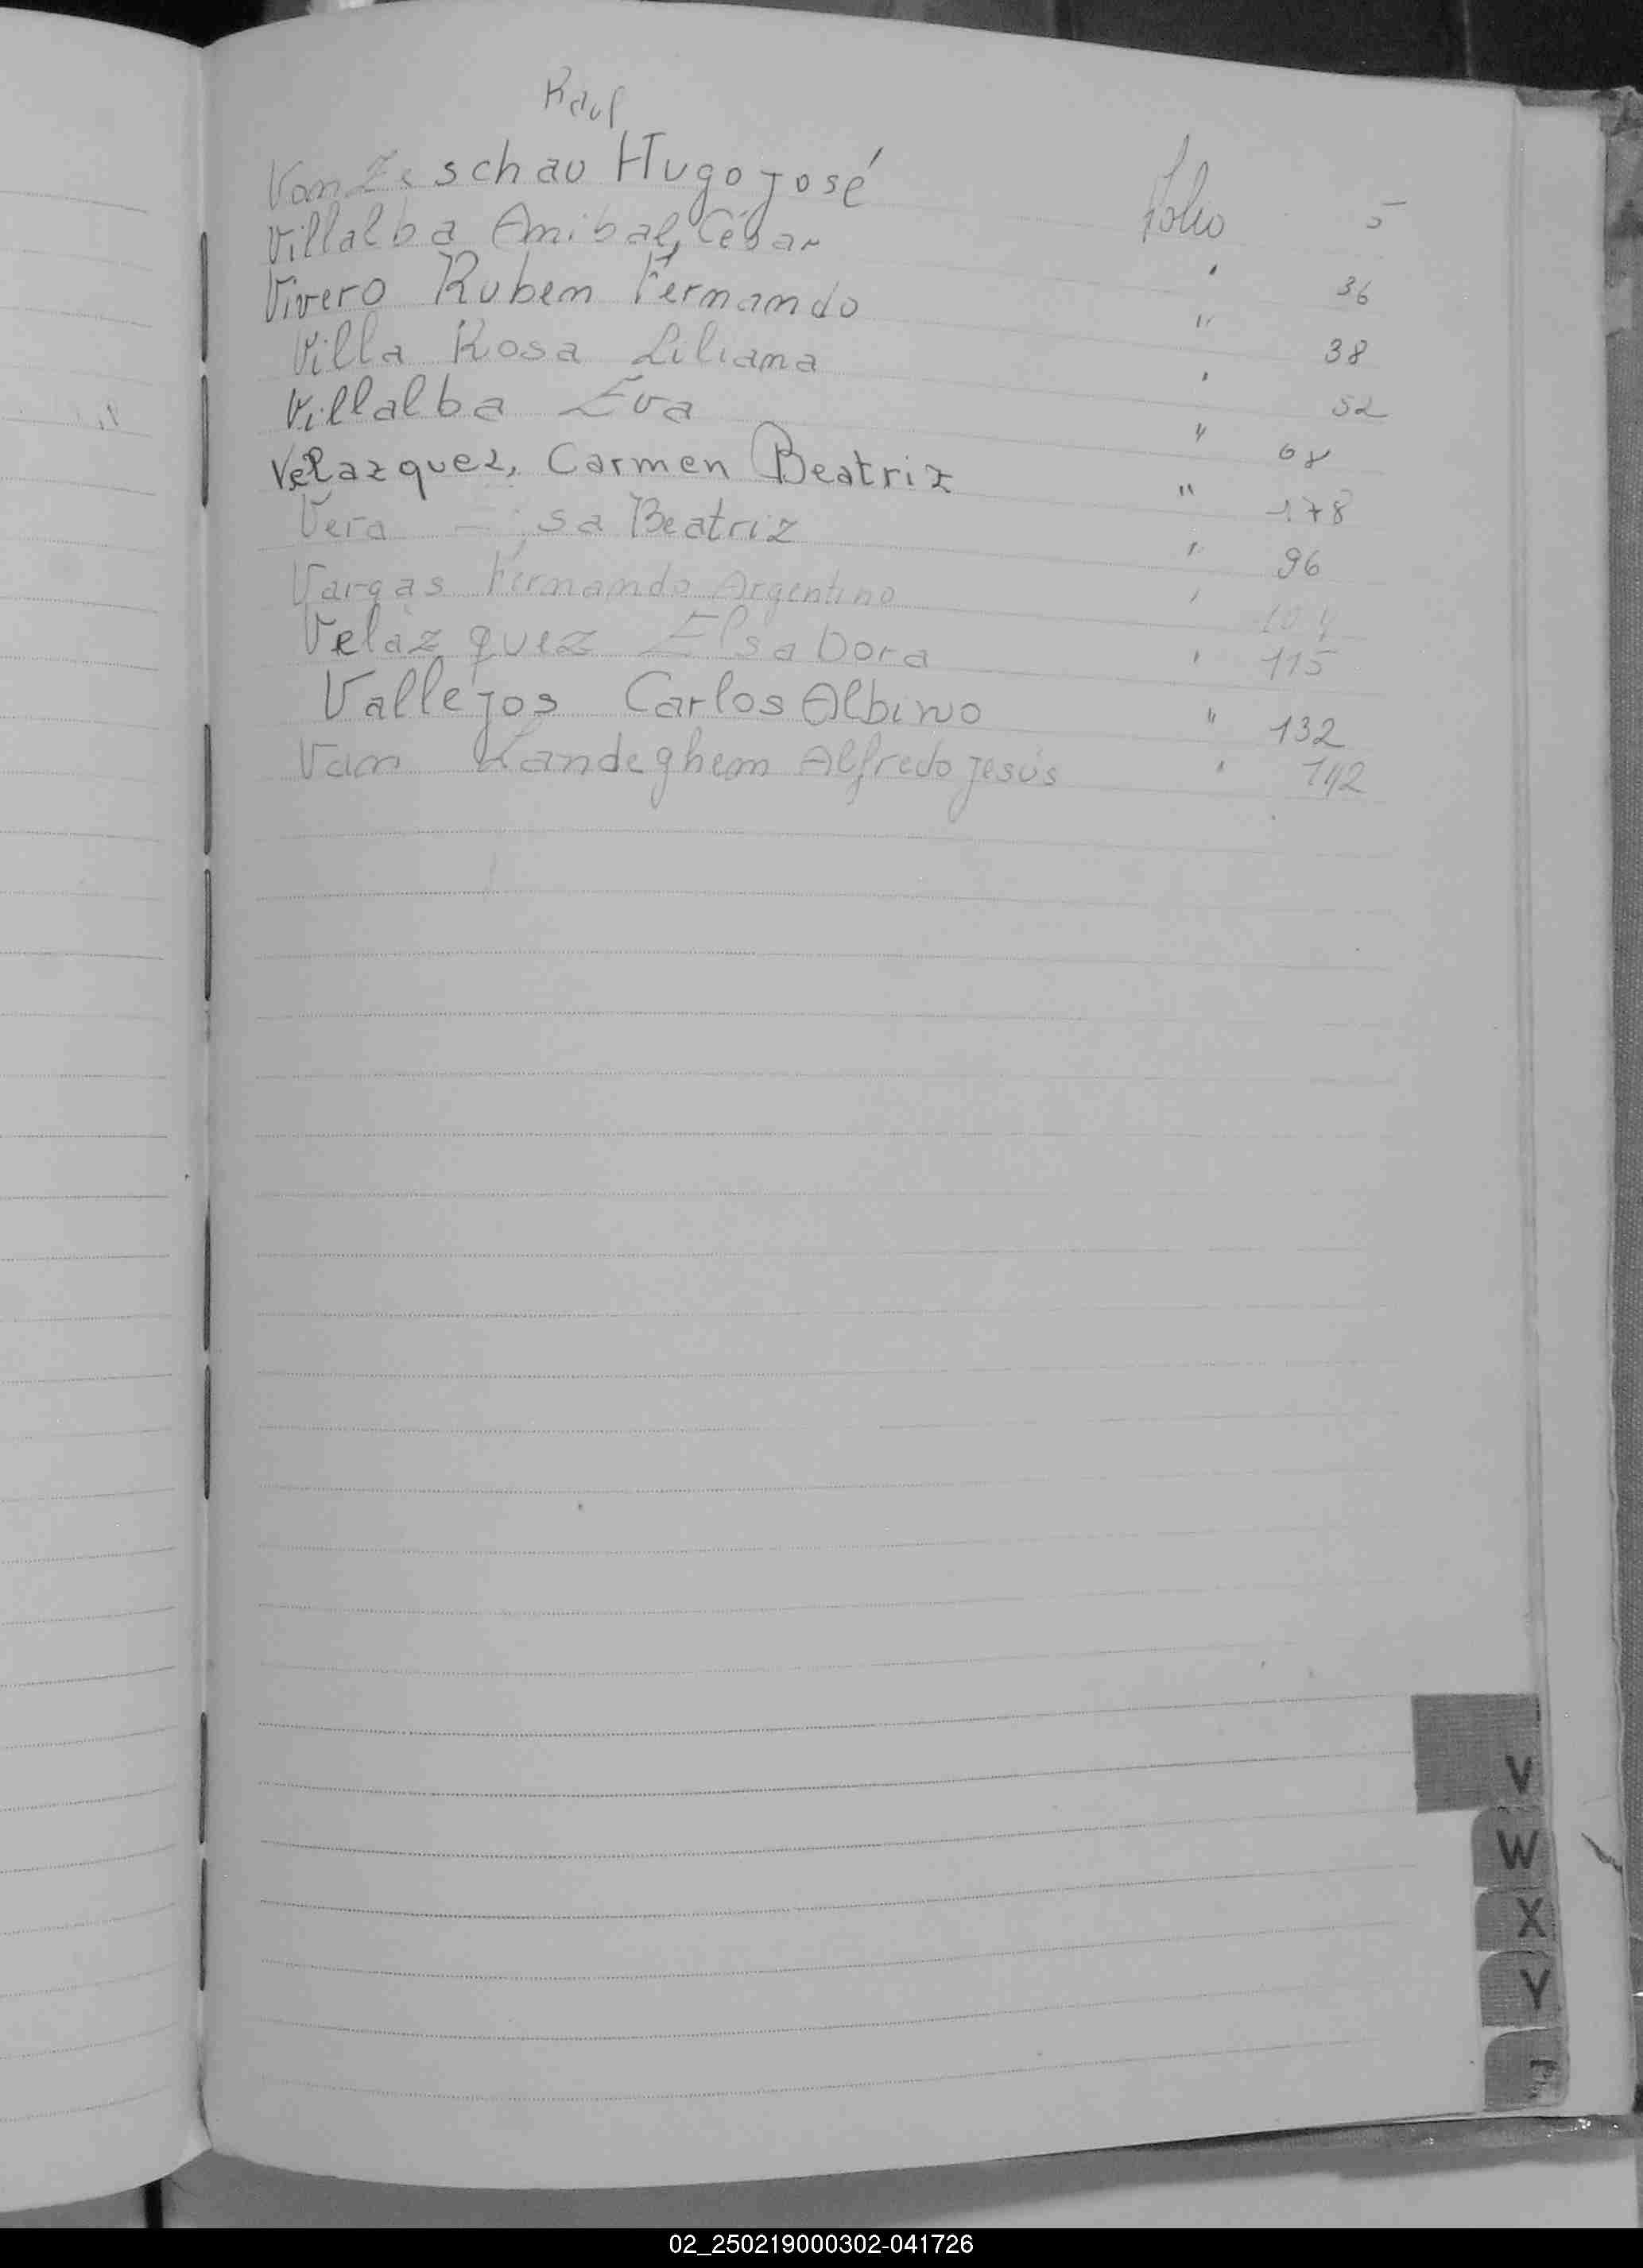 Raul
Von Zeschau Hugo José Folio 5
Villalba Anibal, César " 36
Vivero Ruben Fernando " 38
Villa Rosa Liliana " 52
Villalba Eva " 68
Velazquez, Carmen Beatriz " 178
Vera Beatriz " 96
Vargas Fernando Argentino " 104
Velázquez Elsa Dora " 115
Vallejos Carlos Albino " 132
Van Landeghem Alfredo Jesús " 142
V
W
X
Y
02_250219000302-041726